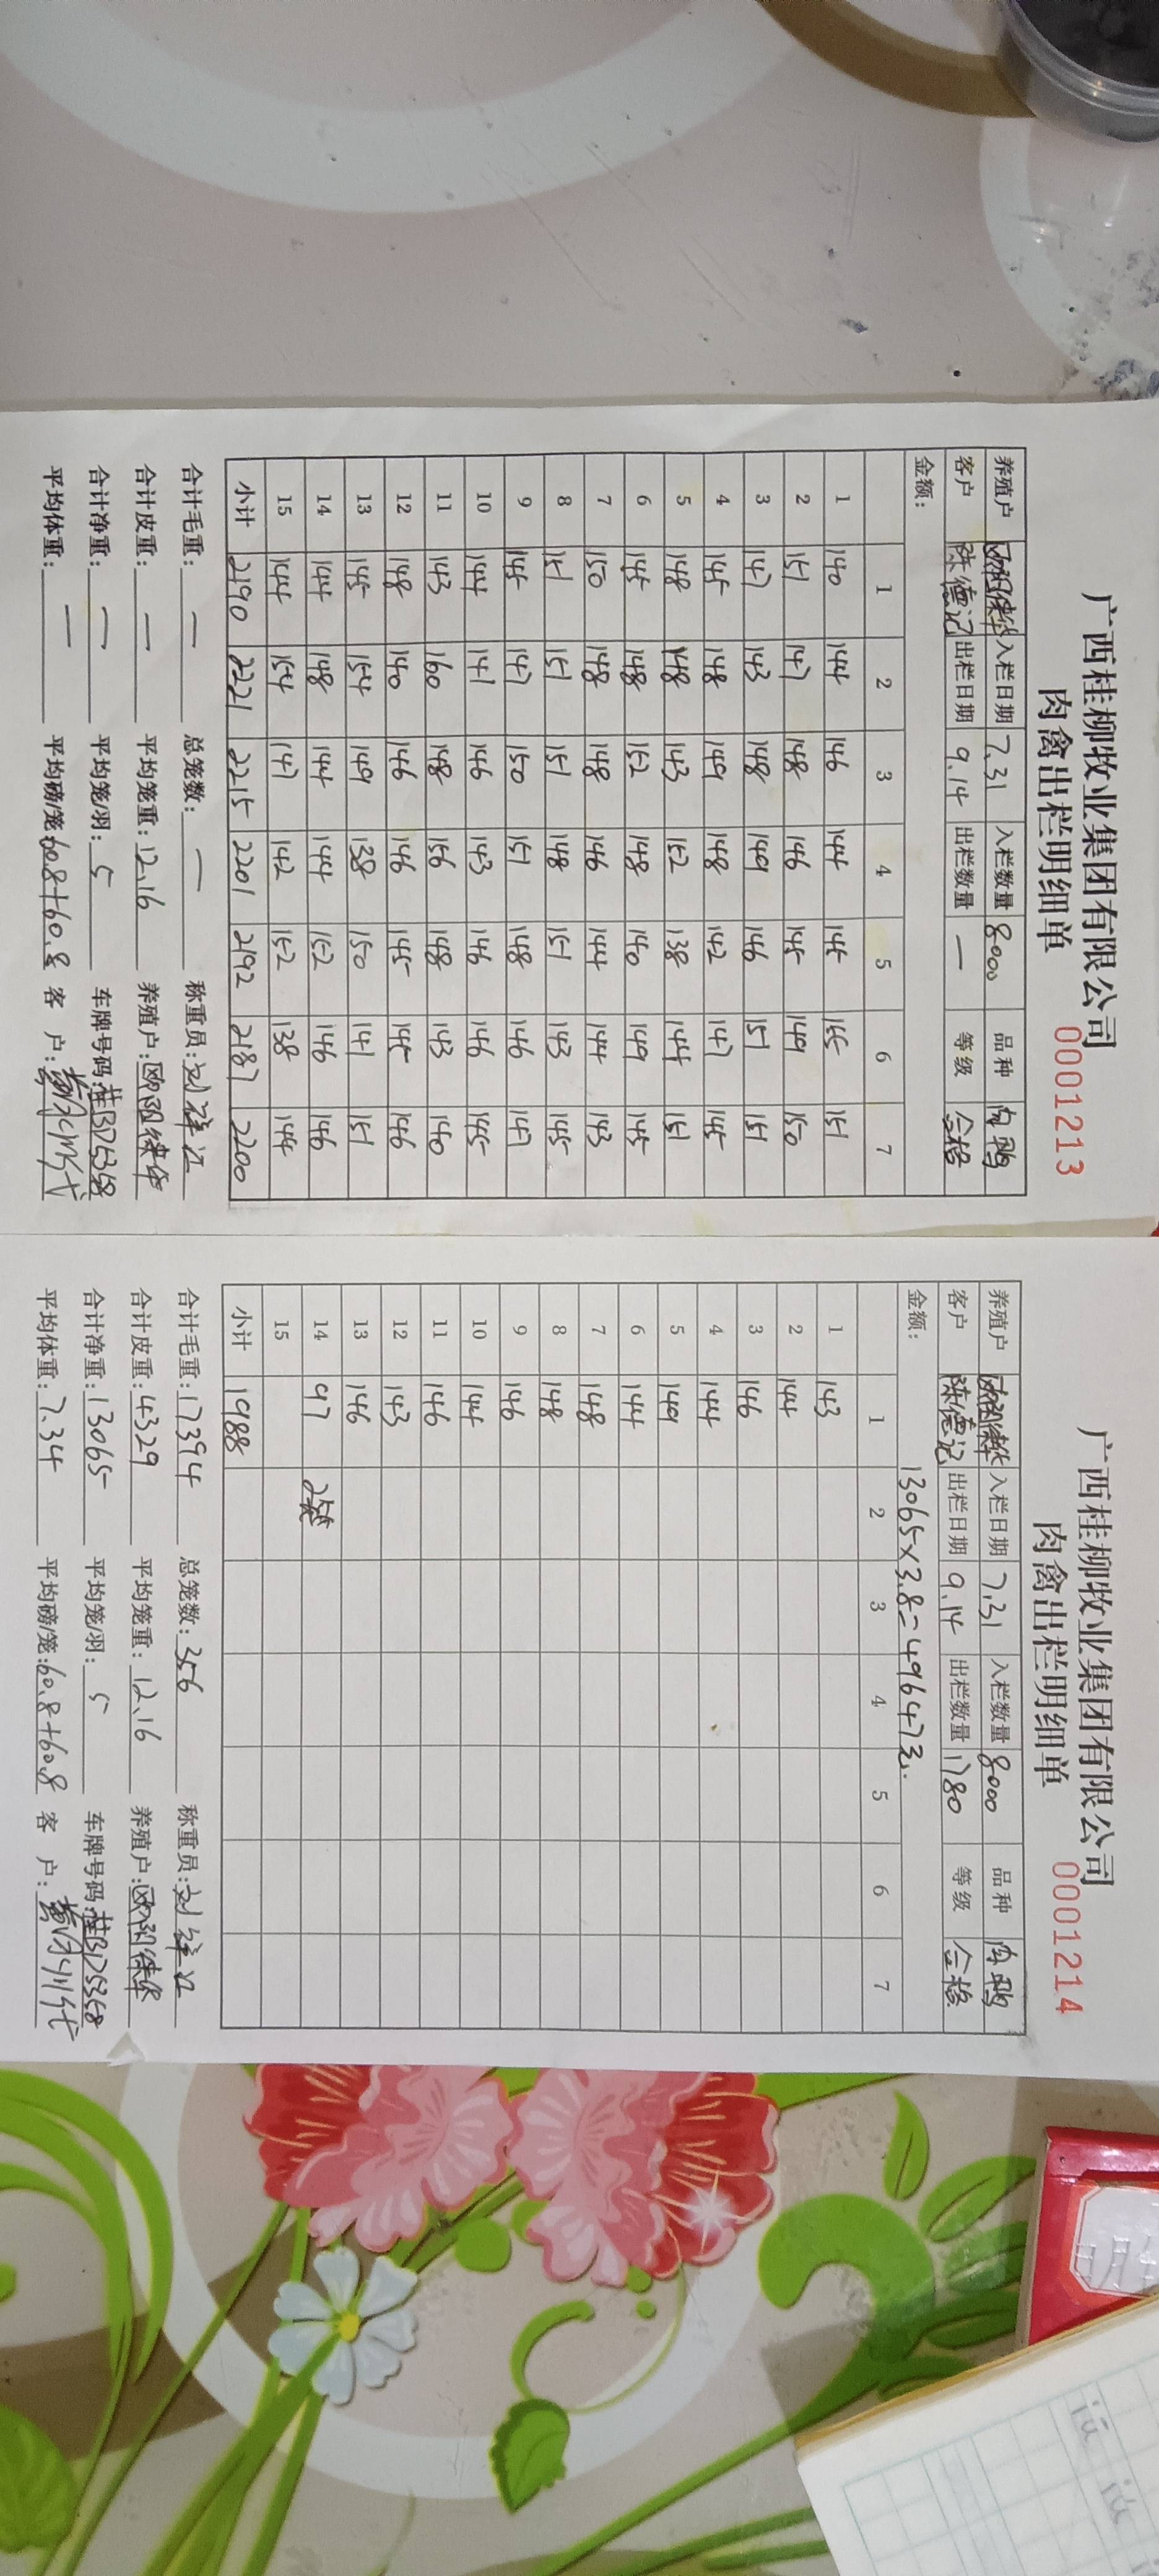 广西桂柳牧业集团有限公司
肉禽出栏明细单 0001213
养殖户 入栏日期 7.31 入栏数量 8000 品种 肉鸭
客户 陈德记 出栏日期 9.14 出栏数量 — 等级 合格
金额:
1 2 3 4 5 6 7
1 140 144 146 144 145 145 151
2 151 147 148 146 145 149 150
3 147 143 148 149 146 151 151
4 145 148 149 148 142 147 145
5 148 148 143 152 138 144 151
6 145 148 152 148 140 149 145
7 150 148 148 146 144 144 143
8 151 151 151 148 151 143 145
9 145 147 150 151 148 146 147
10 144 141 146 143 146 146 145
11 143 160 148 156 148 143 140
12 148 140 146 146 145 145 146
13 145 154 149 138 150 141 151
14 144 148 144 144 152 146 146
15 144 154 147 142 152 138 144
小计 2190 2221 2215 2201 2192 2187 2200
合计毛重: — 总笼数: — 称重员:
合计皮重: — 平均笼重: 12.16 养殖户:
合计净重: — 平均笼/羽: 5 车牌号码: 桂BD5368
平均体重: — 平均磅/笼: 60.8+60.8 客 户:
广西桂柳牧业集团有限公司
肉禽出栏明细单 0001214
养殖户 入栏日期 7.31 入栏数量 8000 品种 肉鸭
客户 陈德记 出栏日期 9.14 出栏数量 1780 等级 合格
金额: 13065×3.8=49647元.
1 2 3 4 5 6 7
1 143
2 144
3 146
4 144
5 149
6 144
7 148
8 148
9 146
10 144
11 146
12 143
13 146
14 97
15
小计 1988
合计毛重: 17394 总笼数: 356 称重员:
合计皮重: 4329 平均笼重: 12.16 养殖户:
合计净重: 13065 平均笼/羽: 5 车牌号码: 桂BD5368
平均体重: 7.34 平均磅/笼: 60.8+60.8 客 户:
iū iù